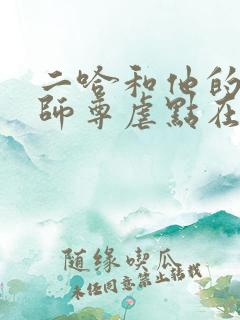 二哈和他的
師尊虐點在
随缘喫瓜
未任同意禁止转载